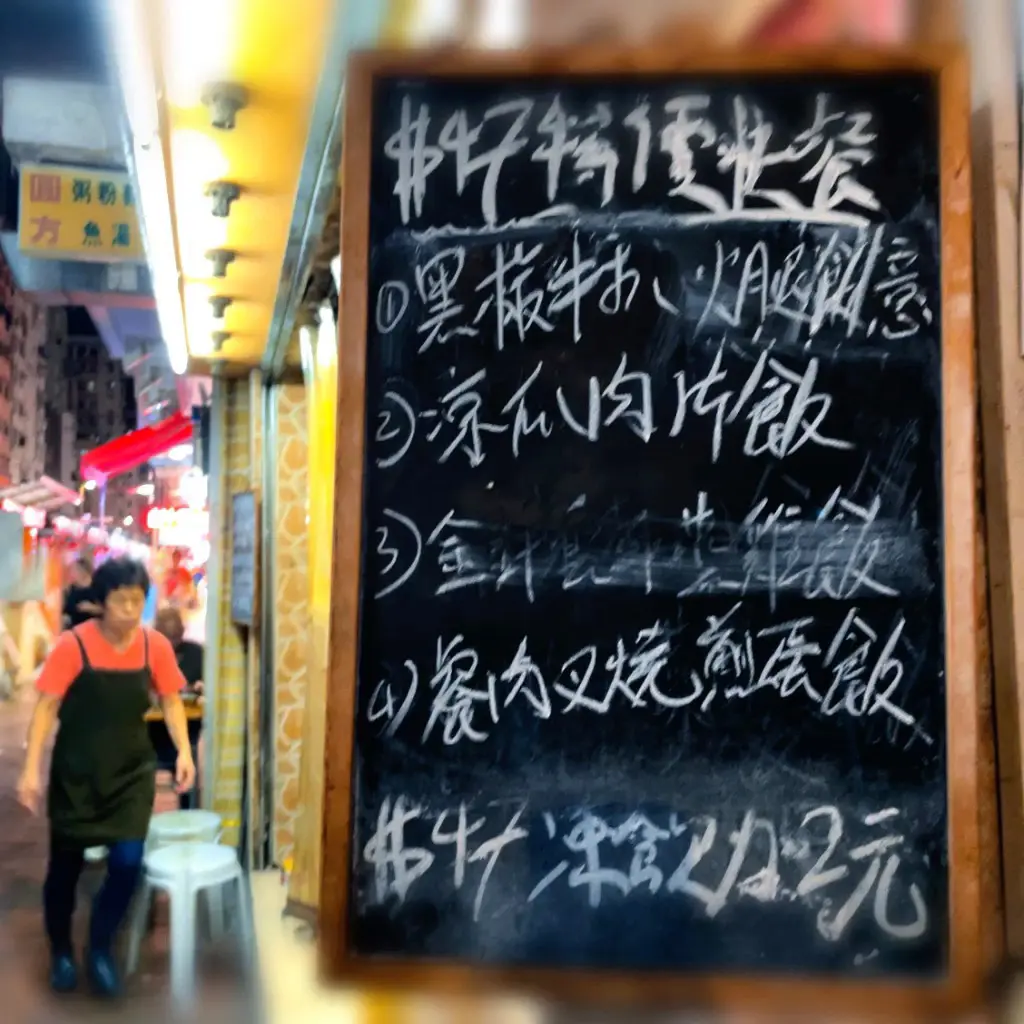 圓方 粥粉麵
魚湯
$47特價快餐
①黑椒牛扒、火腿意
②涼瓜肉片飯
③金 飯
④餐肉叉燒煎蛋飯
$47 凍飲加2元